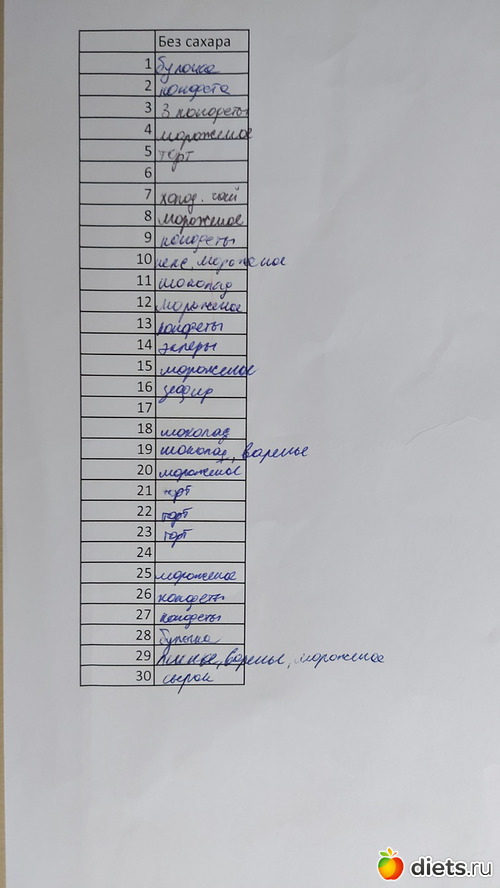 Без сахара
1 булочка
2 конфета
3 3 конфеты
4 мороженое
5 торт
6
7 холод. чай
8 мороженое
9 конфеты
10 кекс, мороженое
11 шоколад
12 мороженое
13 конфеты
14 эклеры
15 мороженое
16 зефир
17
18 шоколад
19 шоколад, варенье
20 мороженое
21 торт
22 торт
23 торт
24
25 мороженое
26 конфеты
27 конфеты
28 булочка
29 варенье, мороженое
30 сырок
diets.ru